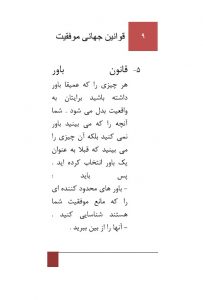 ۹ قوانین جهانی موفقیت
۵- قانون باور
هر چیزی را که عمیقا باور
داشته باشید برایتان به
واقعیت بدل می شود . شما
آنچه را که می بینید باور
نمی کنید بلکه آن چیزی را
می بینید که قبلا به عنوان
یک باور انتخاب کرده اید .
پس باید :
- باور های محدود کننده ای
را که مانع موفقیت شما
هستند شناسایی کنید .
- آنها را از بین ببرید .